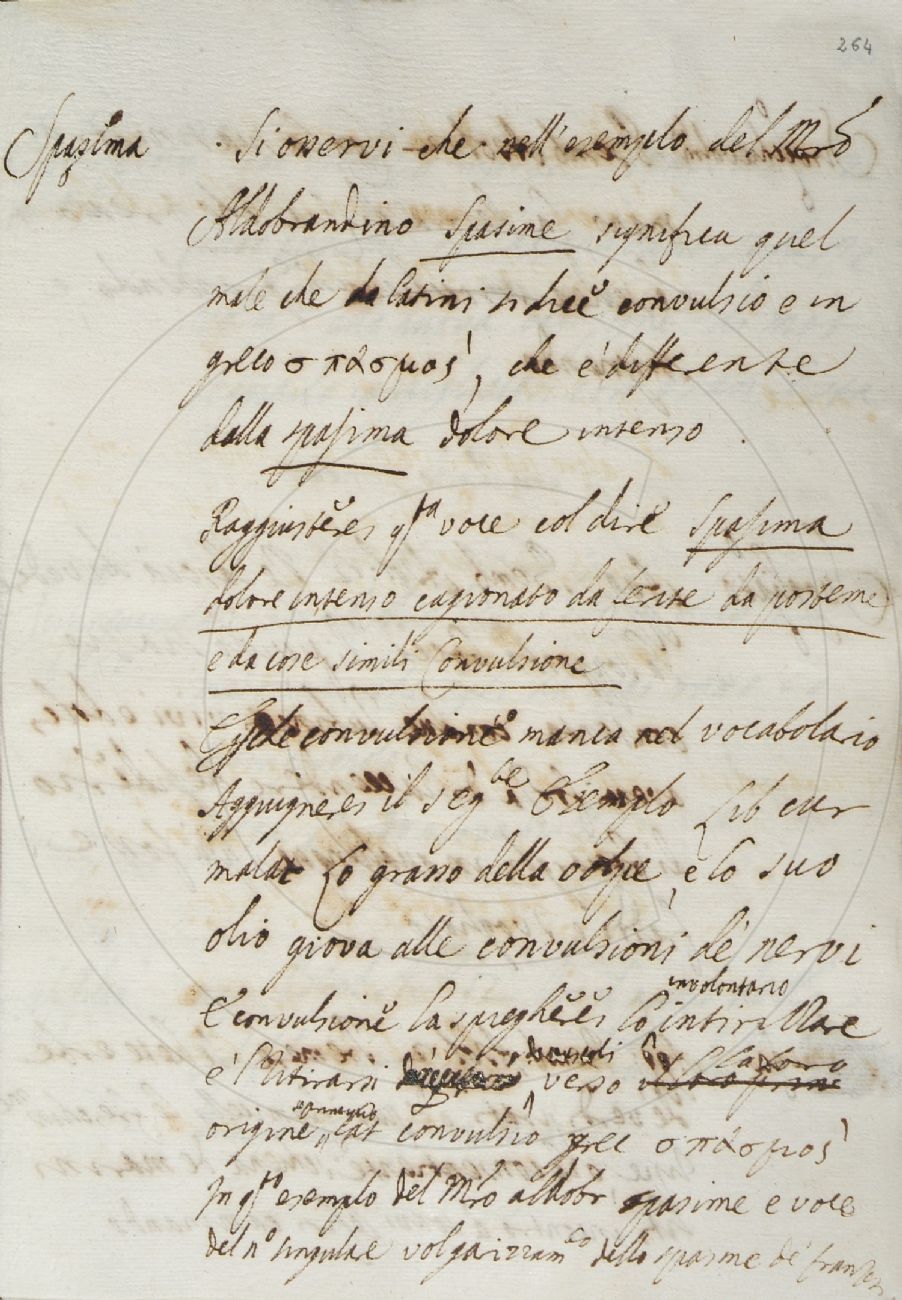 264
Spasima Si osservi che nell'esempio del Mrõ
Aldobrandino Spasime significa quel
male che da latini si dice convulsio e in
greco σπάσμος, che è differente
dalla spasima dolore intenso
Raggiusterei qta voce col dire Spasima
dolore intenso cagionato da ferite da posteme
e da cose simili Convulsione
convulsione manca nel vocabolario
Aggiugnerei il segte Esempio Lib cur
malat Lo grasso della volpe, e lo suo
olio giova alle convulsioni de' nervi
E convulsione la spiegherei lo involontario intirizzare
e l'ritirarsi de muscoli verso la loro
origine lat convulsio grec σπάσμος
In qto esempio del Mrõ aldobr spasime e voce
del no singulare volgarizzamto dello spasme de'